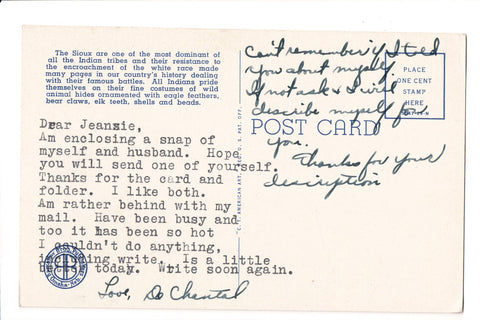 The Sioux are one of the most dominant of
all the Indian tribes and their resistance to
the encroachment of the white race made
many pages in our country's history dealing
with their famous battles. All Indians pride
themselves on their fine costumes of wild
animal hides ornamented with eagle feathers,
bear claws, elk teeth, shells and beads.
Dear Jeanzie,
Am enclosing a snap of
myself and husband. Hope
you will send one of yourself.
Thanks for the card and
folder. I like both.
Am rather behind with my
mail. Have been busy and
too it has been so hot
I couldn't do anything,
including write. Is a little
better today. Write soon again.
Love, De Chantal
Can't remember if I told
you about myself.
If not ask & I will
describe myself for
you.
Thanks for your
description
POST CARD
PLACE
ONE CENT
STAMP
HERE
Omaha, Neb.